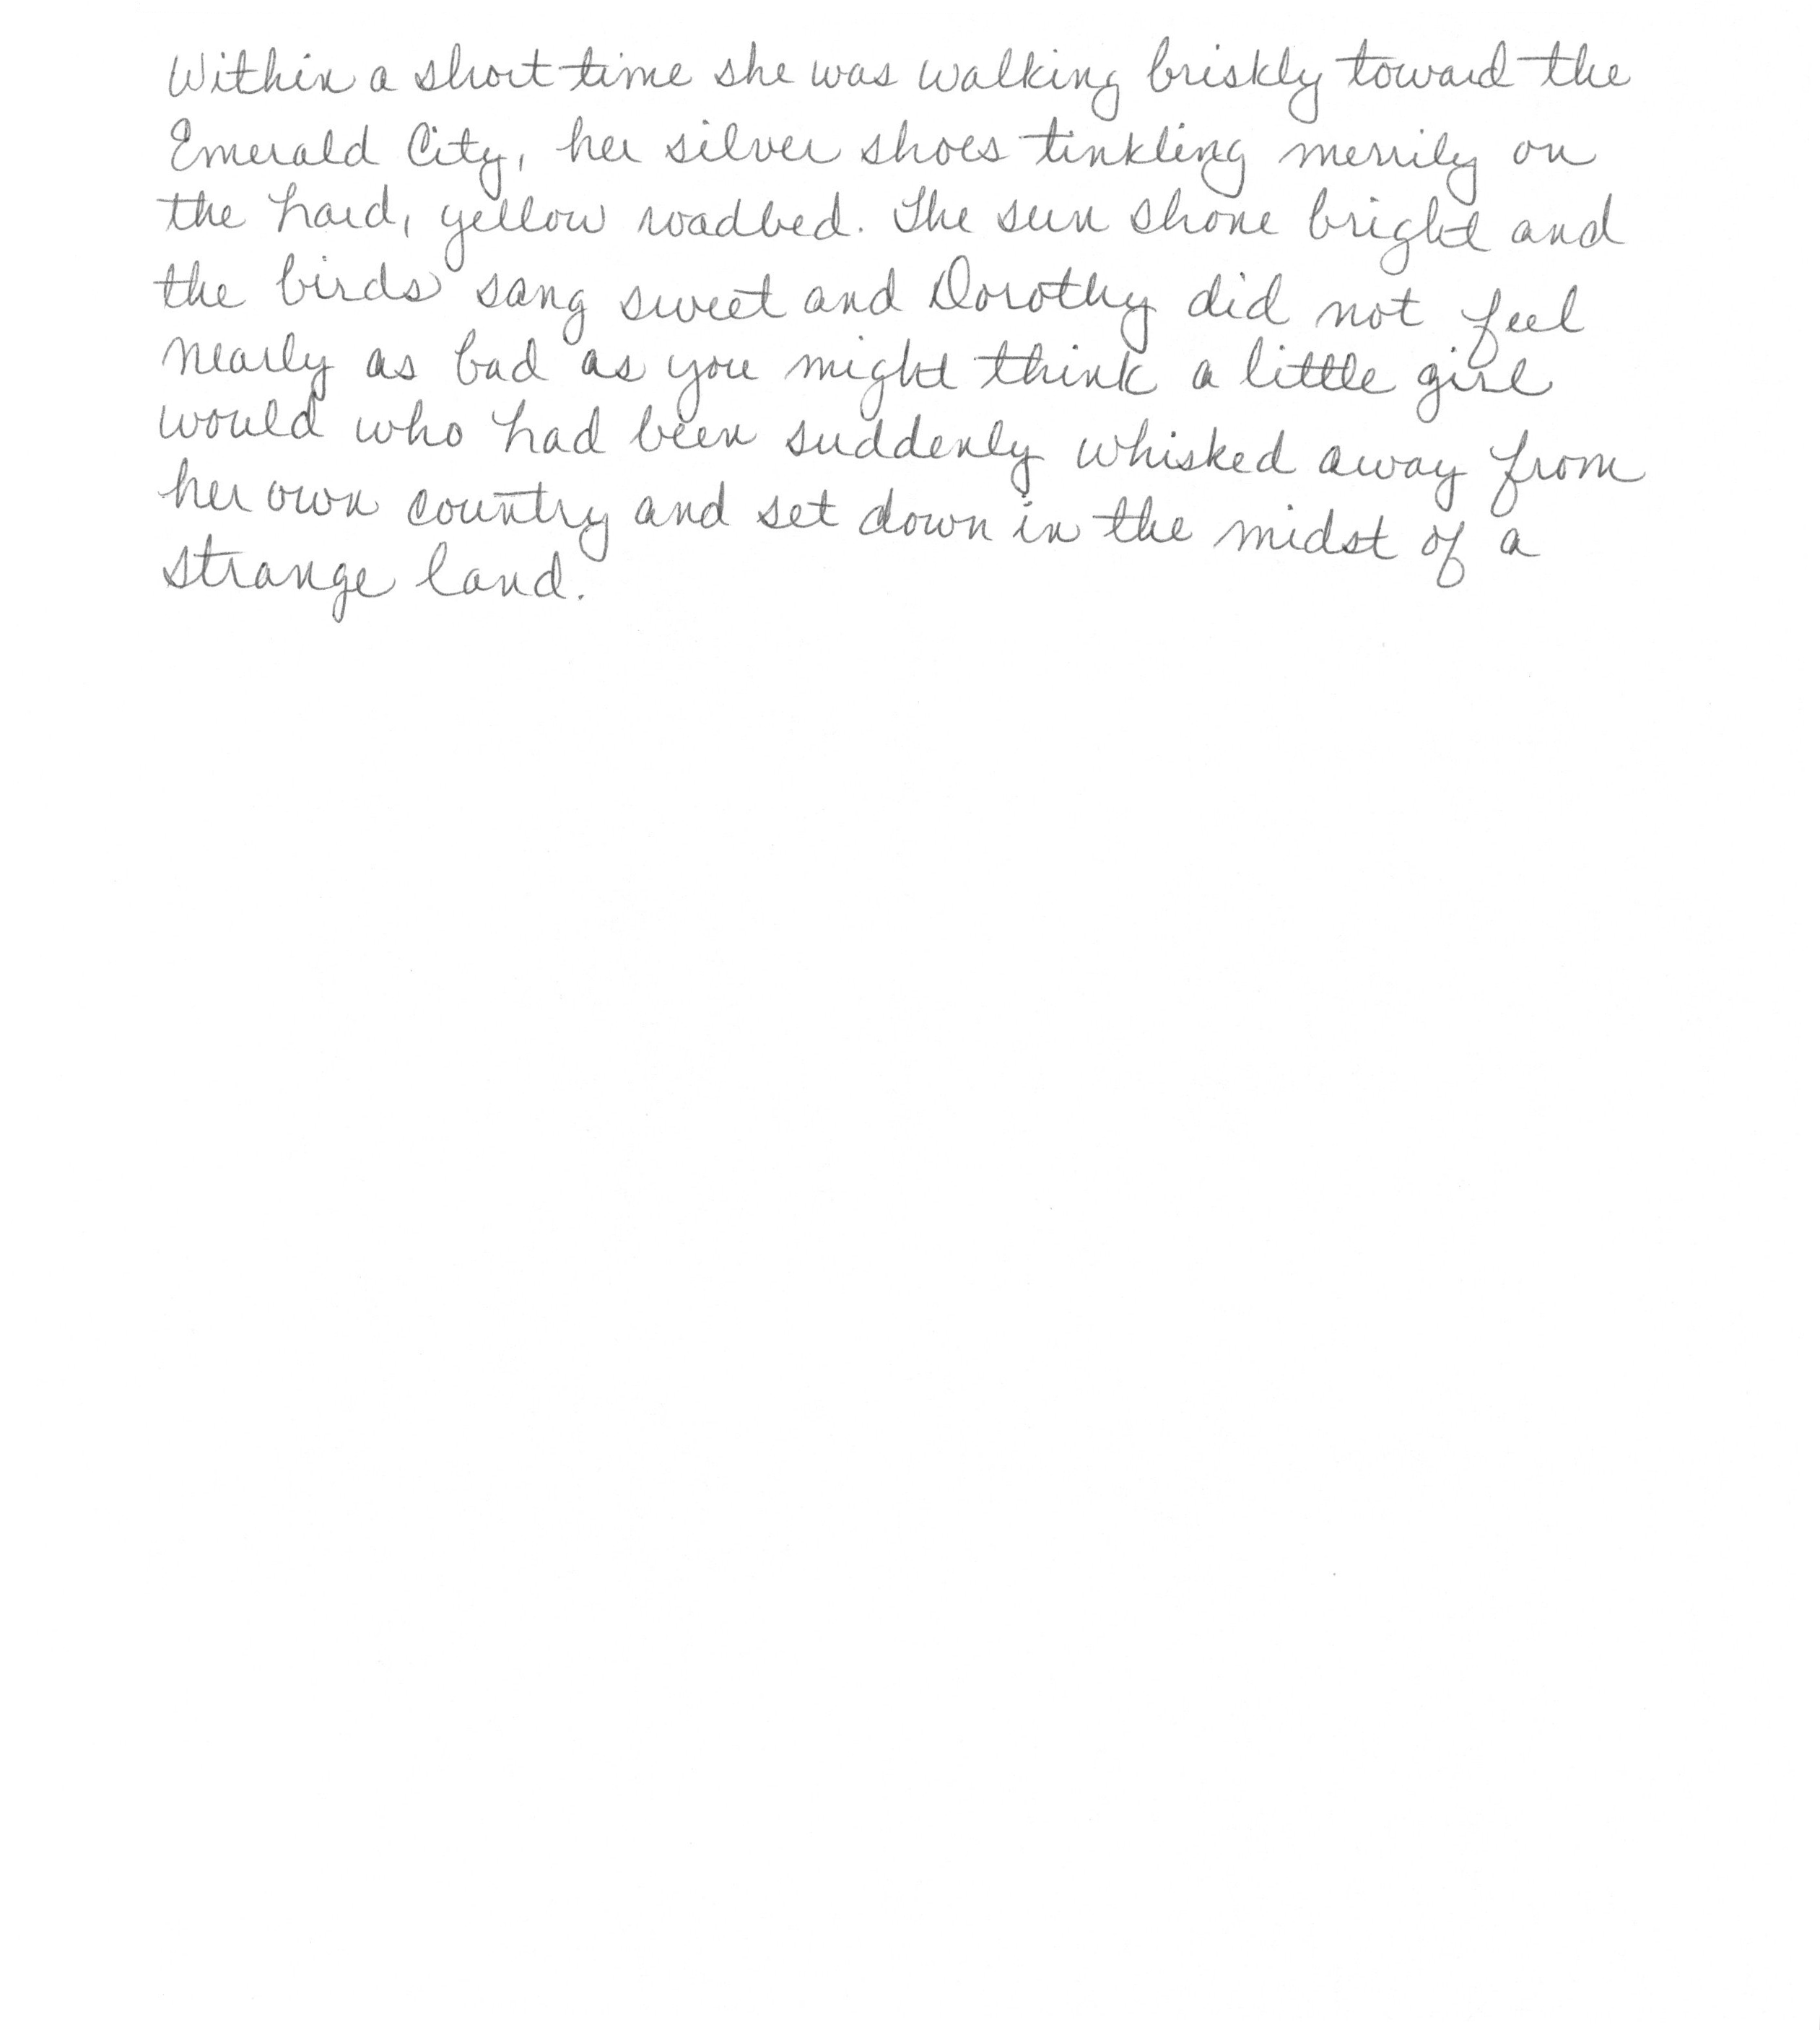 Within a short time she was walking briskly toward the
Emerald City, her silver shoes tinkling merrily on
the hard, yellow roadbed. The sun shone bright and
the birds sang sweet and Dorothy did not feel
nearly as bad as you might think a little girl
would who had been suddenly whisked away from
her own country and set down in the midst of a
strange land.